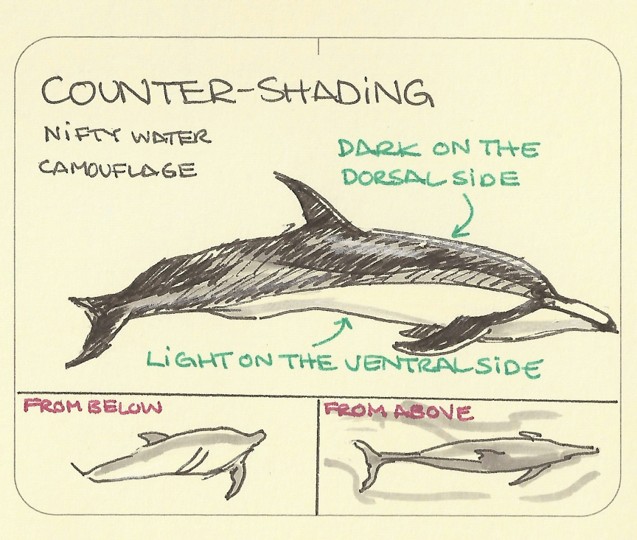 COUNTER-SHADiNG
NiFTY WATER
CAMOUFLAGE
DARK ON THE
DORSAL SiDE
LiGHT ON THE VENTRAL SiDE
FROM BELOW
FROM ABOVE